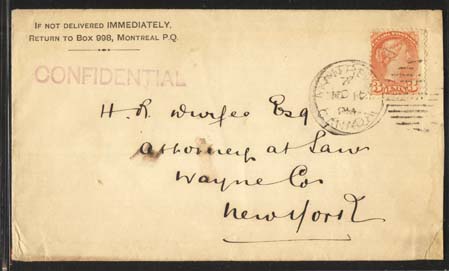 IF NOT DELIVERED IMMEDIATELY,
RETURN TO BOX 998, MONTREAL P.Q.
CONFIDENTIAL
H. R. Durfee Esq
Attorney at Law
Wayne Co
New York
CANADA
3